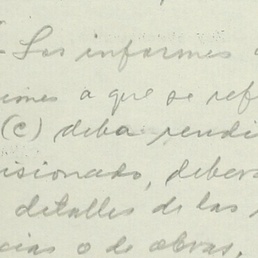 - Los informes
iones a que se ref
(c) deba rendi
isionado, deber
detalles de las
cias o de obras.